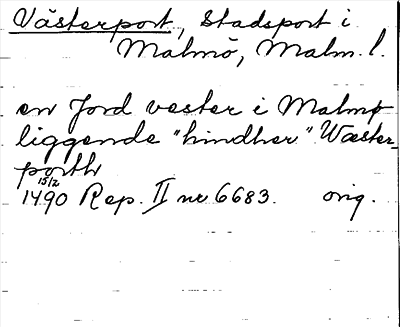 Västerport, Stadsport i
Malmö, Malm. l.
en Jord vester i Malmø
liggende "hindher" Wæster-
porth
15/2
1490 Rep. II nr 6683. orig.